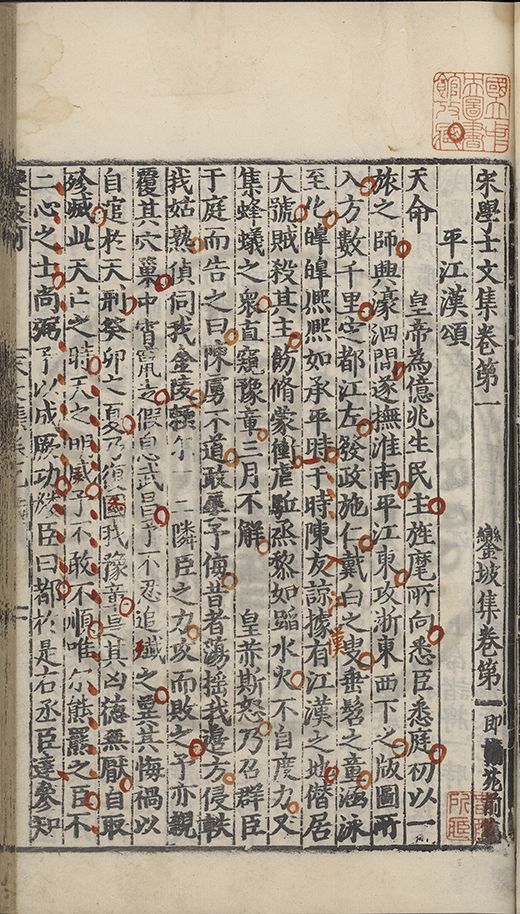 國立中央圖書館收藏
宋學士文集卷第一 鑾坡集卷第一 即翰苑前集
平江漢頌
天命 皇帝為億兆生民主旌麾所向悉臣悉庭初以一
旅之師興濠泗間遂撫淮南平江東攻浙東西下之版圖所
入方數千里定都江左發政施仁戴白之叟垂髫之童涵泳
至化皡皡熙熙如承平時于時陳友諒據有江漢之地僭居
大號賊殺其主飭脩蒙衝虐駈烝黎如蹈水火不自度力又
集蜂蟻之衆直窺豫章三月不解 皇帝斯怒乃召群臣
于庭而告之曰陳虜不道敢辱予侮昔者蕩揺我邊方侵軼
我姑熟偵伺我金陵頼尔一二隣臣之力攻而敗之予亦親
覆其穴巢中宵竄走假息武昌予不忍追殱之冀其悔禍以
自逭於天刑癸卯之夏乃復圍我豫章是其凶德無厭自取
殄滅此天亡之時天之明威予不敢不順唯尔熊羆之臣不
二心之士尚弼予以成厥功羣臣曰都於是右丞臣達參知